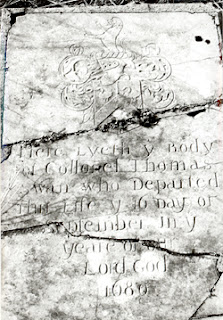 Here Lyeth y Body
of Collonel Thomas
who Departed
this Life y 16 Day of
September In y
years of
Lord God
1689